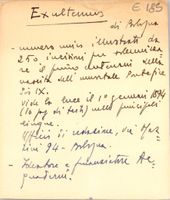 Exultemus
E 185
di Bologna
- numero unico illustrato da
250 incisioni per solennizza
re il primo centenario della
nascita dell'immortale Pontefice
Pio IX.
Vide la luce il 10 gennaio 1894
(16 pag di testo) nelle principali
lingue.
Uffici di redazione, via
94 - Bologna.
- Ideatore e